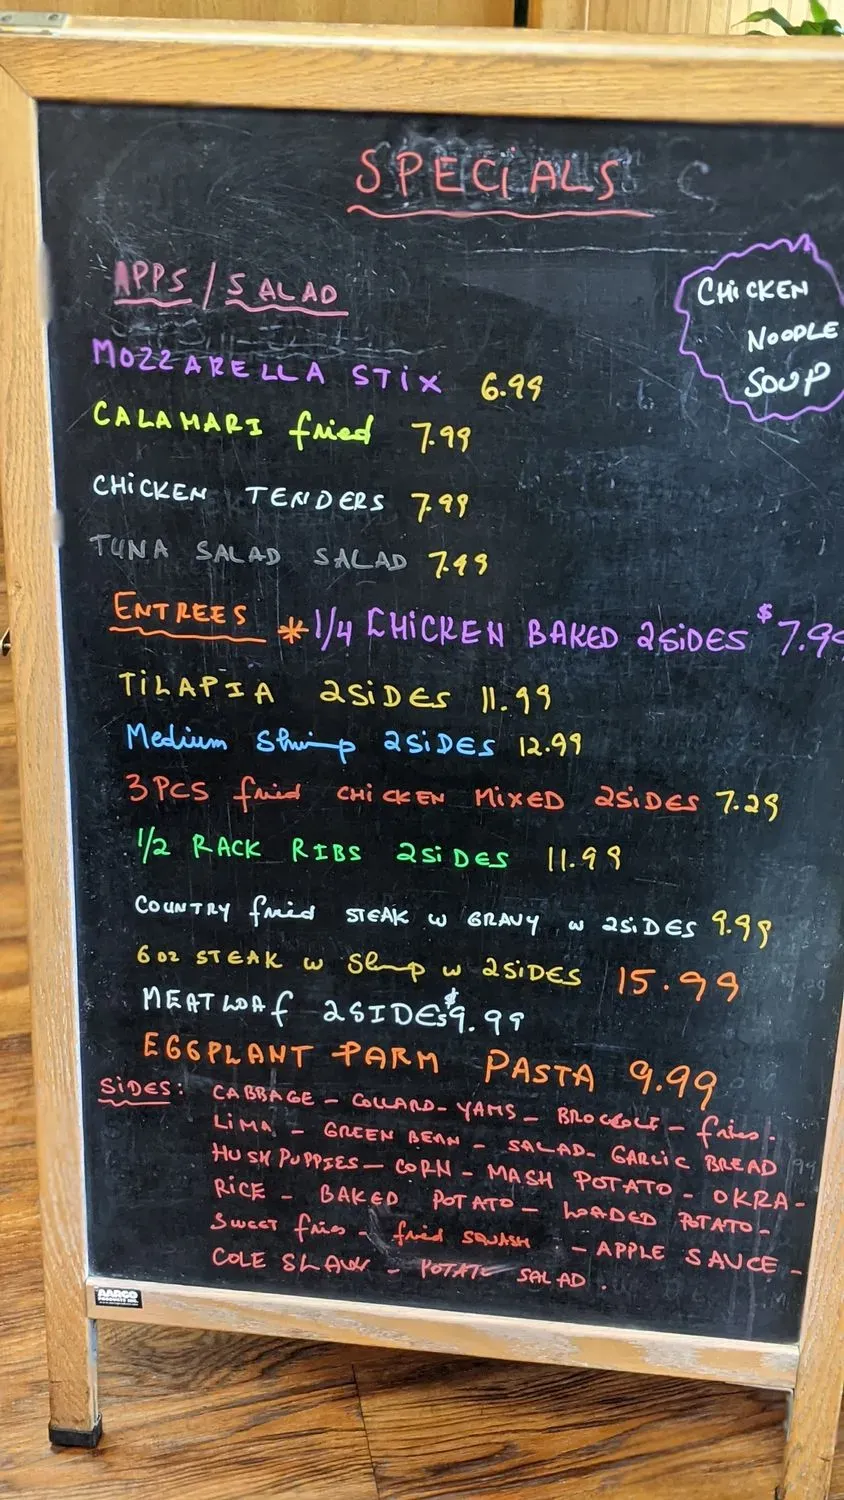 SPECIALS
APPS / SALAD
CHICKEN
NOODLE
SOUP
MOZZARELLA STIX 6.99
CALAMARI fried 7.99
CHICKEN TENDERS 7.99
TUNA SALAD SALAD 7.49
ENTREES * 1/4 CHICKEN BAKED 2SIDES $7.99
TILAPIA 2SIDES 11.99
Medium Shrimp 2SIDES 12.99
3 PCS fried CHICKEN MIXED 2SIDES 7.29
1/2 RACK RIBS 2SIDES 11.99
COUNTRY fried STEAK W GRAVY W 2SIDES 9.99
6 oz STEAK W Shrimp W 2SIDES 15.99
MEATLOAF 2SIDES $9.99
EGGPLANT PARM PASTA 9.99
SIDES: CABBAGE - COLLARD - YAMS - BROCCOLI - fries.
LIMA - GREEN BEAN - SALAD - GARLIC BREAD
HUSH PUPPIES - CORN - MASH POTATO - OKRA -
RICE - BAKED POTATO - LOADED POTATO -
Sweet fries - fried SQUASH - APPLE SAUCE -
COLE SLAW - POTATO SALAD.
AARCO
PRODUCTS INC.